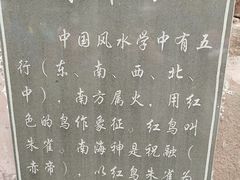 中国风水学中有五
行（东、南、西、北、
中），南方属火，用红
色的鸟作象征，红鸟叫
朱雀。南海神是祝融（
赤帝），以红鸟朱雀为